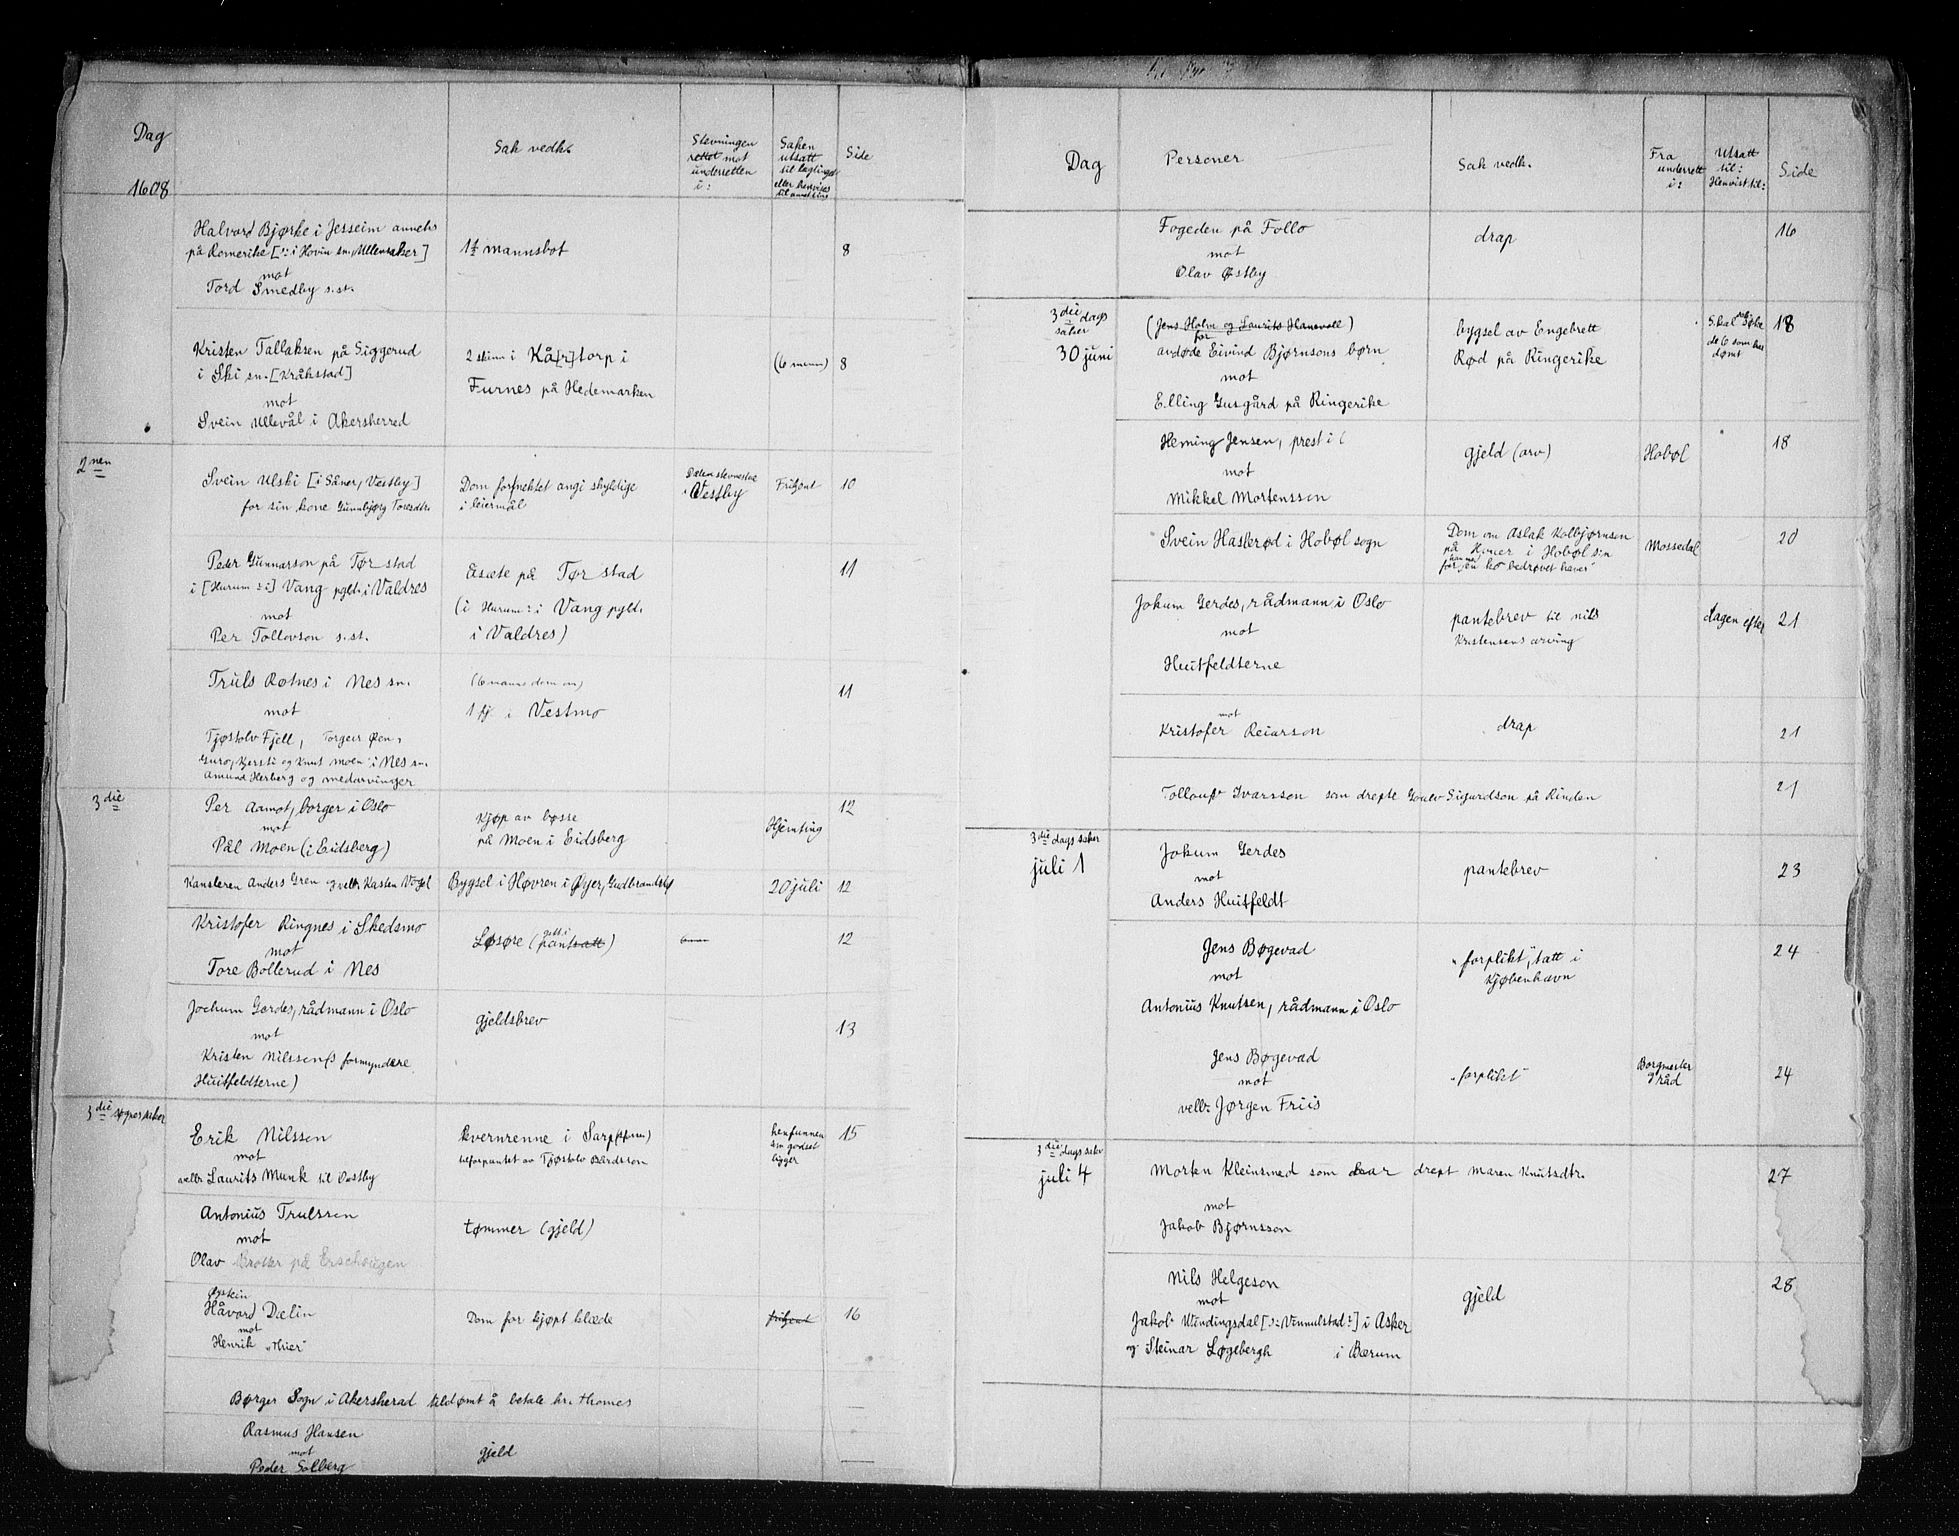 Dag
1608
Sak vedk.
Stevningen
rettet mot
underretten
i:
Saken
utsatt
til lagtinget
eller henvises
til
Side
Halvard Bjørke i Jesseim annebs
på Romerike [ɔ: i Hovin sn. Ullensaker]
mot
Tord Smedby s.st.
mannsbot
8
Kristen Tallaksen på Siggerud
i Ski sn. [Kråkstad]
mot
Svein Ullevål i Akersherred
2 skinn i Kå[r]torp i
Furnes på Hedemarken
(6 menn)
8
2nen
Svein Ulski [i Såner, Vestby]
for sin kone Gunnbjørg Toresdtr.
Dom forfnektet angi skyldige
i leiermål
Vestby
Fritjont
10
Peder Gunnarson på Tør stad
i [Hurum ɔ: i] Vang pgld. i Valdres
mot
Per Tollovson s.st.
Åsæte på Tør stad
(i Hurum ɔ: i Vang pgld.
i Valdres)
11
Truls Rotnes i Nes sn.
mot
Tjøstolv Fjell, Torgeir Øen,
Guro, Kjersti og Knut Moen i Nes sn.
Amund Herberg og medarvinger
(6 manns dom om)
1 fj. i Vestmo
11
3die
Per Aamot, borger i Oslo
mot
Pål Moen (i Eidsberg)
Kjøp av bøsse
på Moen i Eidsberg
Hjemting
12
Kansleren Anders Gren og velb. Kasten Vogel
Bygsel i Høvren i Øyer, Gudbrandsdal
20 juli
12
Kristofer Ringnes i Skedsmo
mot
Tore Bollerud i Nes
Løsøre (gitt i pantsatt)
12
Jochum Gerdes, rådmann i Oslo
mot
Kristen Nilssen(s formyndere
Huitfeldterne)
gjeldsbrev
13
3die søpersaker
Erik Nilssen
mot
velb. Laurits Munk til Østby
Kvernrenne i Sarp(sfossen)
utforpantet av Tjøstolv Bårdsson
henfunnen
sin godset
ligger
15
Antonius Trulssen
mot
Olav Brotter på Erschougen
tømmer (gjeld)
Øystein
Håvard Dælin
mot
Henrik „Thier“
Dom for kjøpt klæde
fritjent
16
Børger Sogn i Akersherad tildømt å betale hr. Thomes
Rasmus Hansen
mot
Peder Solberg
gjeld
Dag
Personer
Sak vedk.
Fra
underrett
i:
Utsatt
til:
Henvist til:
Side
Fogeden på Follo
mot
Olav Østby
drap
16
3die dags
saker
30 juni
(Jens Holm og Laurits Hanevoll)
for
avdøde Eivind Bjørnsons børn
mot
Elling Gusgård på Ringerike
bygsel av Engebrett
Rød på Ringerike
Skal søke
de 6 som har
dømt
18
Heming Jensen, prest i (
mot
Mikkel Mortensson
gjeld (arv)
Hobøl
18
Svein Haslerød i Hobøl sogn
Dom om Aslak Kolbjørnson
på Honer i Hobøl sin
for „en ko bedrøvet haver“
Mossedal
20
Jokum Gerdes, rådmann i Oslo
mot
Huitfeldterne
pantebrev til Nils
Kristensens arving
dagen efter
21
mot
Kristofer Reiarson
drap
21
Tollouf Ivarsson som drepte Gowlv Sigurdson på Rinden
21
3die dags saker
juli 1
Jokum Gerdes
mot
Anders Huitfeldt
pantebrev
23
Jens Bøgevad
mot
Antonius Knutsen, rådmann i Oslo
„forplikt“, tatt i
Kjøbenhavn
24
Jens Bøgevad
mot
velb. Jørgen Friis
„forplikt“
Borgmester
og råd
24
3die dags saker
juli 4
Morten Kleinsmed som har drept Maren Knutsdtr.
mot
Jakob Bjørnsson
27
Nils Helgeson
mot
Jakob Windingsdal [ɔ: Vinnulstad?] i Asker
og Steinar Løgebergh i Bærum
gjeld
28